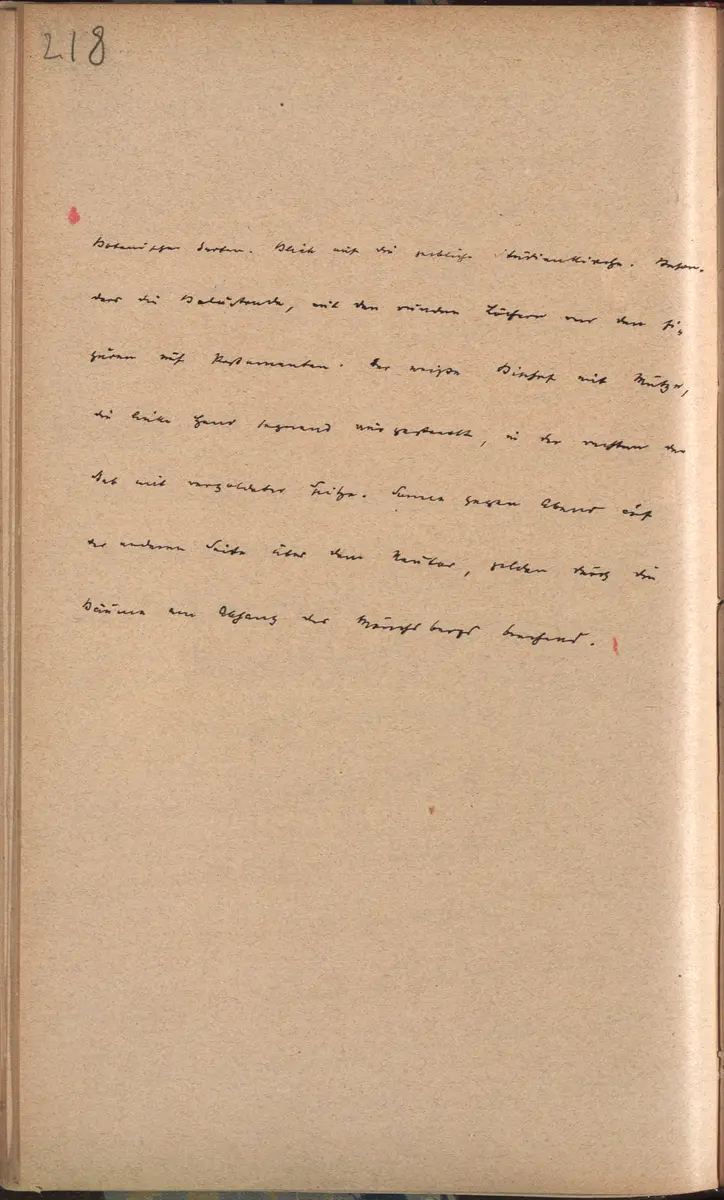 218
Botanischer Garten. Blick auf die gelbliche Studienkirche. Beson-
ders die Balustrade, mit den runden Löchern und den Fi-
guren auf Postamenten. Der weiße Bischof mit Mütze,
die linke Hand segnend ausgestreckt, in der rechten den
Stab mit vergoldeter Spitze. Sonne gegen Abend auf
der anderen Seite über dem Neutor, golden durch die
Bäume am Abhang des Mönchsbergs brechend.